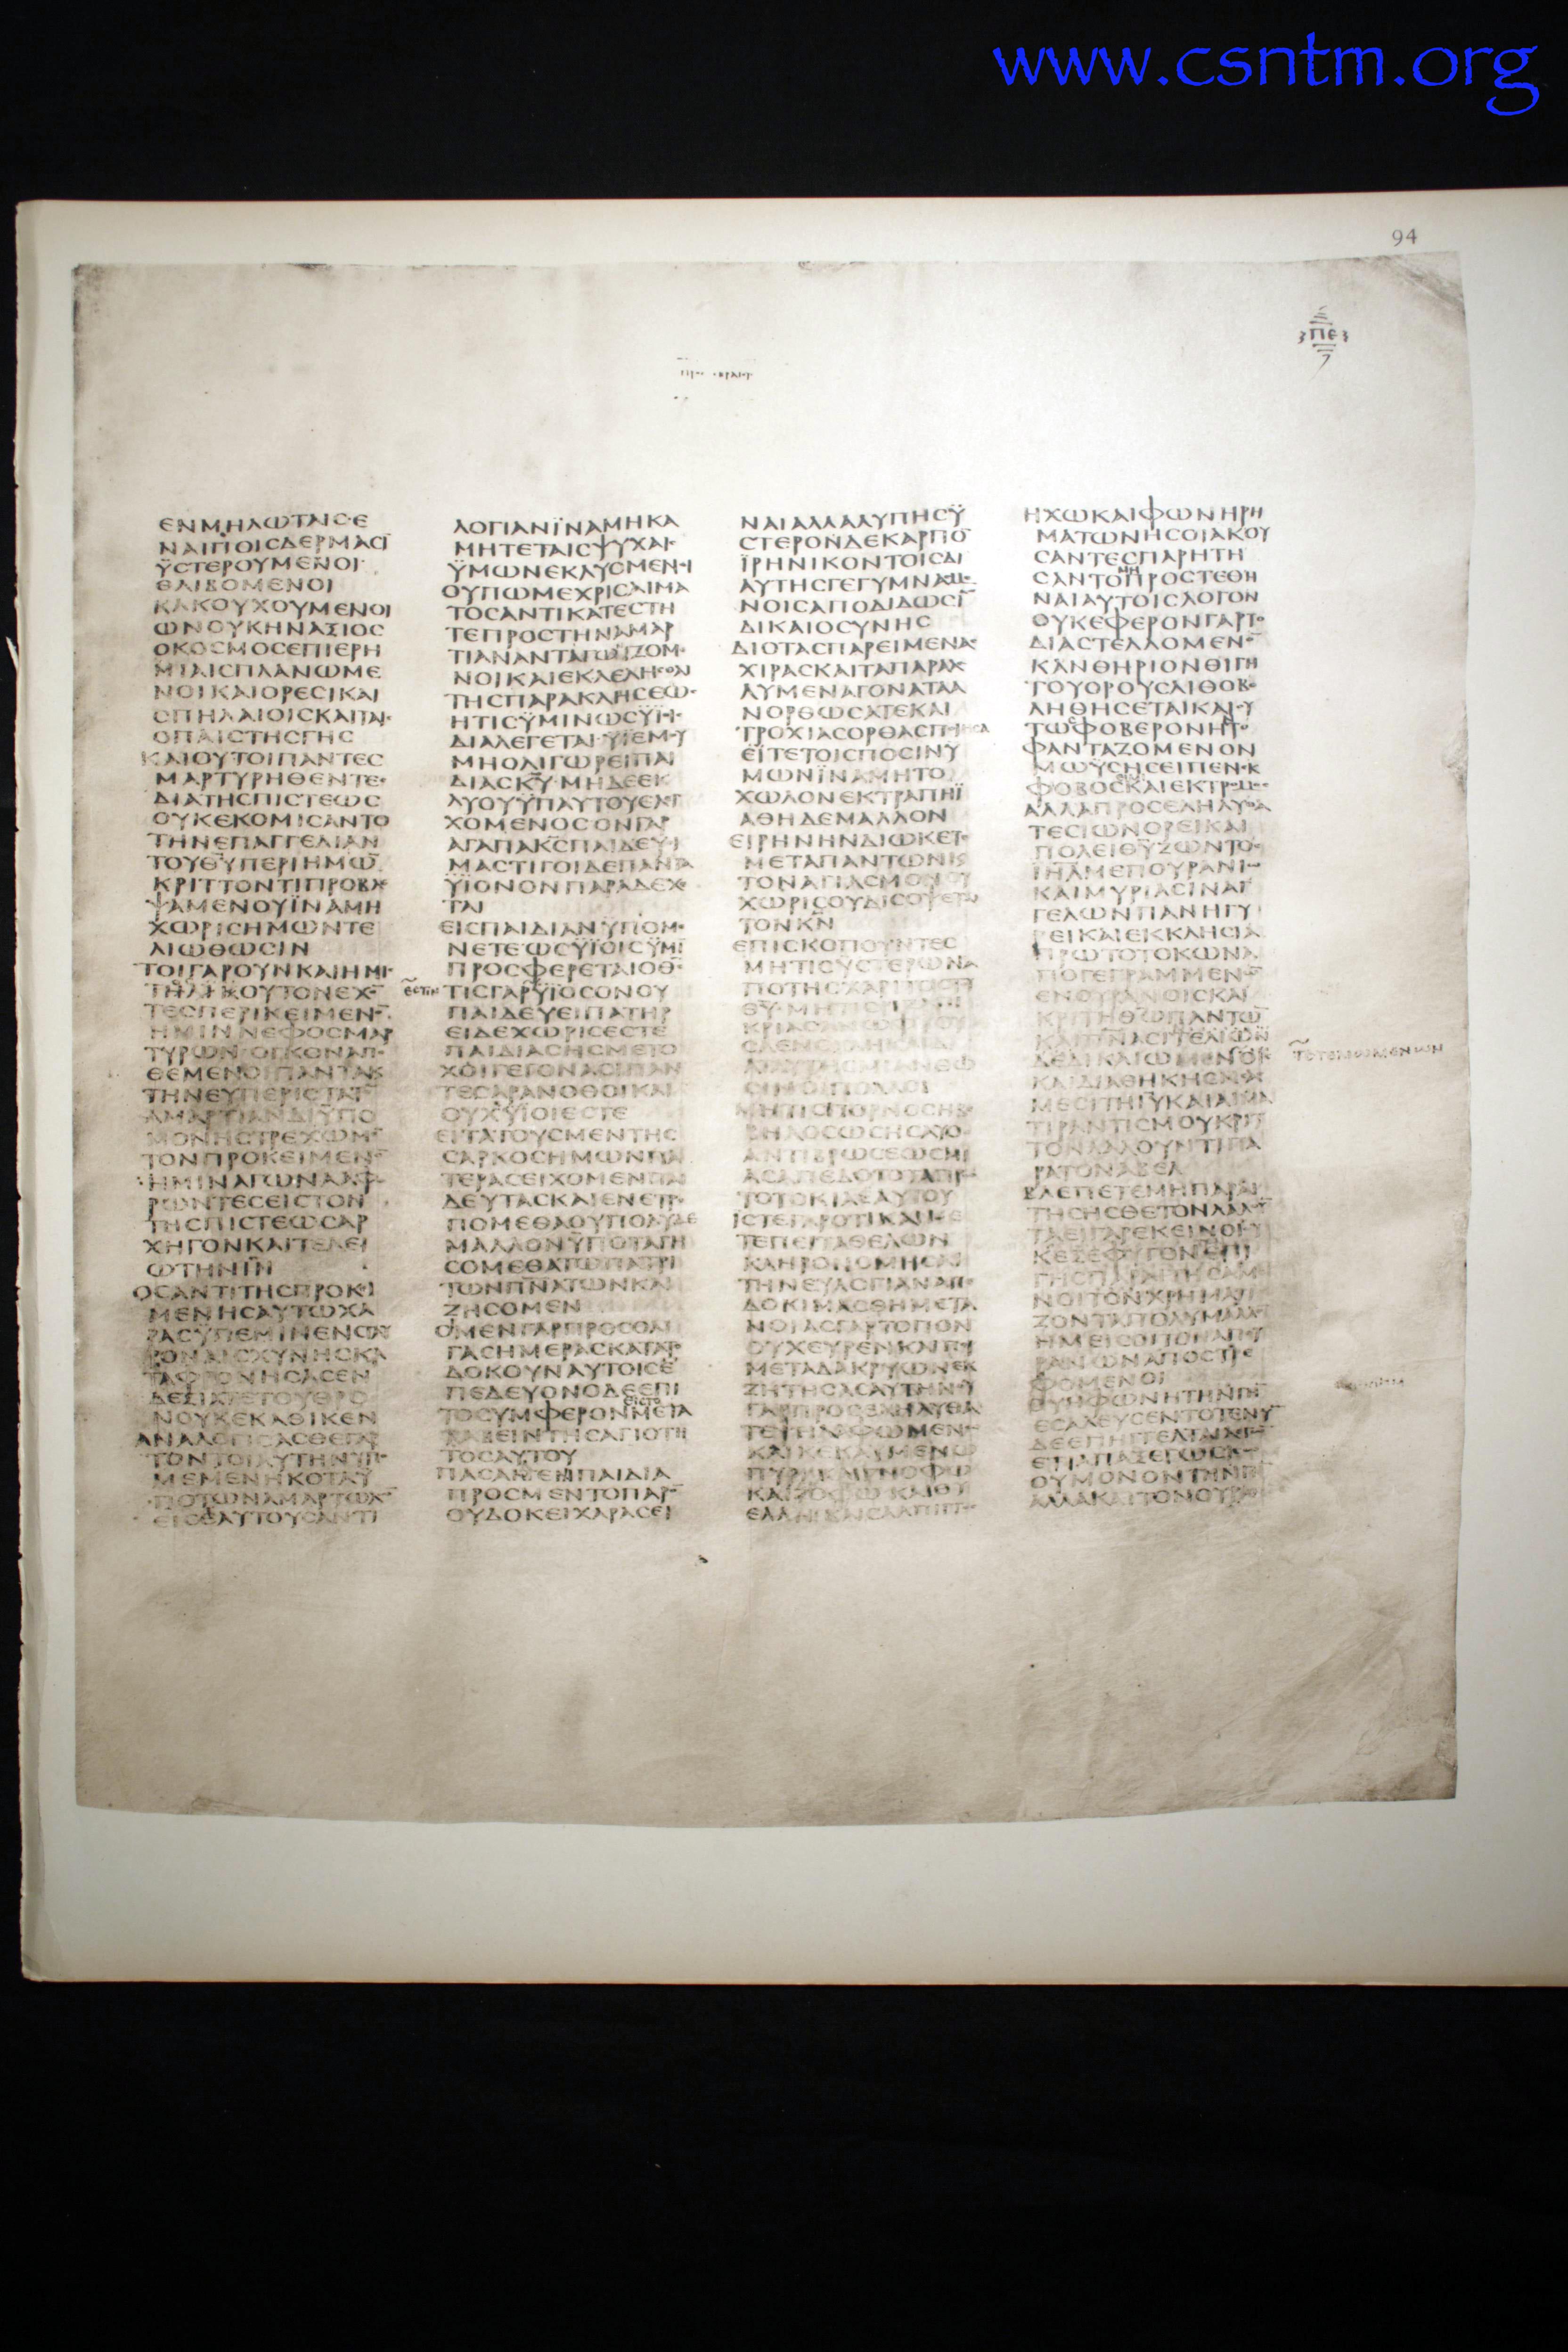 www.csntm.org
94
ΠΕ
ΕΝΜΗΛΩΤΑΙCΕ
ΝΑΙΓΙΟΙCΔΕΡΜΑCΙ
ΫCΤΕΡΟΥΜΕΝΟΙ
ΘΛΙΒΟΜΕΝΟΙ
ΚΑΚΟΥΧΟΥΜΕΝΟΙ
ΩΝΟΥΚΗΝΑΞΙΟC
ΟΚΟCΜΟCΕΠΙΕΡΗ
ΜΙΑΙCΠΛΑΝΩΜΕ
ΝΟΙΚΑΙΟΡΕCΙΚΑΙ
CΠΗΛΑΙΟΙCΚΑΙΤΑΙ
ΟΠΑΙCΤΗCΓΗC
ΚΑΙΟΥΤΟΙΠΑΝΤΕC
ΜΑΡΤΥΡΗΘΕΝΤΕC
ΔΙΑΤΗCΠΙCΤΕΩC
ΟΥΚΕΚΟΜΙCΑΝΤΟ
ΤΗΝΕΠΑΓΓΕΛΙΑΝ
ΤΟΥΘΥΠΕΡΙΗΜΩ
ΚΡΙΤΤΟΝΤΙΠΡΟΒΛΕ
ΨΑΜΕΝΟΥΪΝΑΜΗ
ΧΩΡΙCΗΜΩΝΤΕ
ΛΙΩΘΩCΙΝ
ΤΟΙΓΑΡΟΥΝΚΑΙΗΜΙC
ΤΗΛΙΚΟΥΤΟΝΕΧΟ
ΤΕCΠΕΡΙΚΕΙΜΕΝΟ
ΗΜΙΝΝΕΦΟCΜΑΡ
ΤΥΡΩΝΟΓΚΟΝΑΠΟ
ΘΕΜΕΝΟΙΠΑΝΤΑΚ
ΤΗΝΕΥΠΕΡΙCΤΑΤΟ
ΑΜΑΡΤΙΑΝΔΙΫΠΟ
ΜΟΝΗCΤΡΕΧΩΜΕ
ΤΟΝΠΡΟΚΕΙΜΕΝΟ
ΗΜΙΝΑΓΩΝΑΑΦΟ
ΡΩΝΤΕCΕΙCΤΟΝ
ΤΗCΠΙCΤΕΩCΑΡ
ΧΗΓΟΝΚΑΙΤΕΛΕΙ
ΩΤΗΝΙΝ
ΟCΑΝΤΙΤΗCΠΡΟΚΙ
ΜΕΝΗCΑΥΤΩΧΑ
ΡΑCΥΠΕΜΙΝΕΝCΤΑΥ
ΡΟΝΑΙCΧΥΝΗCΚΑ
ΤΑΦΡΟΝΗCΑCΕΝ
ΔΕΞΙΑΤΕΤΟΥΘΡΟ
ΝΟΥΚΕΚΑΘΙΚΕΝ
ΑΝΑΛΟΓΙCΑCΘΕΓΑΡ
ΤΟΝΤΟΙΑΥΤΗΝΥΠΟ
ΜΕΜΕΝΗΚΟΤΑΫ
ΠΟΤΩΝΑΜΑΡΤΩΛΩ
ΕΙCΕΑΥΤΟΥCΑΝΤΙ
ΛΟΓΙΑΝΪΝΑΜΗΚΑ
ΜΗΤΕΤΑΙCΨΥΧΑΙC
ΫΜΩΝΕΚΛΥΟΜΕΝΟΙ
ΟΥΠΩΜΕΧΡΙCΑΙΜΑ
ΤΟCΑΝΤΙΚΑΤΕCΤΗ
ΤΕΠΡΟCΤΗΝΑΜΑΡ
ΤΙΑΝΑΝΤΑΓΩΝΙΖΟΜΕ
ΝΟΙΚΑΙΕΚΛΕΛΗCΘΑΙ
ΤΗCΠΑΡΑΚΛΗCΕΩC
ΗΤΙCΫΜΙΝΩCΫΪΟΙC
ΔΙΑΛΕΓΕΤΑΙΥΙΕΜΟΥ
ΜΗΟΛΙΓΩΡΕΙΠΑΙ
ΔΙΑCΚΥΜΗΔΕΕΚ
ΛΥΟΥΫΠΑΥΤΟΥΕΛΕΓ
ΧΟΜΕΝΟCΟΝΓΑΡ
ΑΓΑΠΑΚCΠΑΙΔΕΥΕΙ
ΜΑCΤΙΓΟΙΔΕΠΑΝΤΑ
ΫΪΟΝΟΝΠΑΡΑΔΕΧΕ
ΤΑΙ
ΕΙCΠΑΙΔΙΑΝΫΠΟΜΕ
ΝΕΤΕΩCΫΪΟΙCΫΜΙ
ΠΡΟCΦΕΡΕΤΑΙΟΘC
εcτιν
ΤΙCΓΑΡΫΪΟCΟΝΟΥ
ΠΑΙΔΕΥΕΙΠΑΤΗΡ
ΕΙΔΕΧΩΡΙCΕCΤΕ
ΠΑΙΔΙΑCΗCΜΕΤΟ
ΧΟΙΓΕΓΟΝΑCΙΠΑΝ
ΤΕCΑΡΑΝΟΘΟΙΚΑΙ
ΟΥΧΫΪΟΙΕCΤΕ
ΕΙΤΑΤΟΥCΜΕΝΤΗC
CΑΡΚΟCΗΜΩΝΠΑ
ΤΕΡΑCΕΙΧΟΜΕΝΠΑΙ
ΔΕΥΤΑCΚΑΙΕΝΕΤΡΕ
ΠΟΜΕΘΑΟΥΠΟΛΥΔΕ
ΜΑΛΛΟΝΫΠΟΤΑΓΗ
CΟΜΕΘΑΤΩΠΑΤΡΙ
ΤΩΝΠΝΑΤΩΝΚΑΙ
ΖΗCΟΜΕΝ
ΟΙΜΕΝΓΑΡΠΡΟCΟΛΙ
ΓΑCΗΜΕΡΑCΚΑΤΑΤΟ
ΔΟΚΟΥΝΑΥΤΟΙCΕ
ΠΕΔΕΥΟΝΟΔΕΕΠΙ
ΤΟCΥΜΦΕΡΟΝΜΕΤΑ
ΛΑΒΕΙΝΤΗCΑΓΙΟΤΗ
ΤΟCΑΥΤΟΥ
ΠΑCΑΜΕΝΠΑΙΔΙΑ
ΠΡΟCΜΕΝΤΟΠΑΡΟ
ΟΥΔΟΚΕΙΧΑΡΑCΕΙ
ΝΑΙΑΛΛΑΛΥΠΗCΫ
CΤΕΡΟΝΔΕΚΑΡΠΟ
ΪΡΗΝΙΚΟΝΤΟΙCΔΙ
ΑΥΤΗCΓΕΓΥΜΝΑCΜΕ
ΝΟΙCΑΠΟΔΙΔΩCΙ
ΔΙΚΑΙΟCΥΝΗC
ΔΙΟΤΑCΠΑΡΕΙΜΕΝΑC
ΧΙΡΑCΚΑΙΤΑΠΑΡΑΛΕ
ΛΥΜΕΝΑΓΟΝΑΤΑΑ
ΝΟΡΘΩCΑΤΕΚΑΙ
ΤΡΟΧΙΑCΟΡΘΑCΠΟΙΗCΑ
ΕΪΤΕΤΟΙCΠΟCΙΝΫ
ΜΩΝΪΝΑΜΗΤΟ
ΧΩΛΟΝΕΚΤΡΑΠΗΪ
ΑΘΗΔΕΜΑΛΛΟΝ
ΕΙΡΗΝΗΝΔΙΩΚΕΤΕ
ΜΕΤΑΠΑΝΤΩΝΚ
ΤΟΝΑΓΙΑCΜΟΝΟΥ
ΧΩΡΙCΟΥΔΙCΟΨΕΤΑΙ
ΤΟΝΚΝ
ΕΠΙCΚΟΠΟΥΝΤΕC
ΜΗΤΙCΥCΤΕΡΩΝΑ
ΠΟΤΗCΧΑΡΙΤΟCΤΟΥ
ΘΥΜΗΤΙCΡΙΖΑΠΙ
ΚΡΙΑCΑΝΩΦΥΟΥCΑ
ΕΝΟΧΛΗΚΑΙΔΙ
ΑΥΤΗCΜΙΑΝΘΩ
CΙΝΟΙΠΟΛΛΟΙ
ΜΗΤΙCΠΟΡΝΟCΗΒΕ
ΒΗΛΟCΩCΗCΑΥΟ
ΑΝΤΙΒΡΩCΕΩCΜΙ
ΑCΑΠΕΔΟΤΟΤΑΠΡΩ
ΤΟΤΟΚΙΑΕΑΥΤΟΥ
ΙCΤΕΓΑΡΟΤΙΚΑΙΜΕ
ΤΕΠΕΙΤΑΘΕΛΩΝ
ΚΛΗΡΟΝΟΜΗCΑΙ
ΤΗΝΕΥΛΟΓΙΑΝΑΠΕ
ΔΟΚΙΜΑCΘΗΜΕΤΑ
ΝΟΙΑCΓΑΡΤΟΠΟΝ
ΟΥΧΕΥΡΕΝΚΑΙΠΕΡ
ΜΕΤΑΔΑΚΡΥΩΝΕΚ
ΖΗΤΗCΑCΑΥΤΗΝΟΥ
ΓΑΡΠΡΟCΕΛΗΛΥΘΑ
ΤΕΨΗΛΑΦΩΜΕΝΩ
ΚΑΙΚΕΚΑΥΜΕΝΩ
ΠΥΡΙΚΑΙΓΝΟΦΩ
ΚΑΙΖΟΦΩΚΑΙΘΥ
ΕΛΛΗΚΑΙCΑΛΠΙΓΓΟC
ΗΧΩΚΑΙΦΩΝΗΡΗ
ΜΑΤΩΝΗCΟΙΑΚΟΥ
CΑΝΤΕCΠΑΡΗΤΗ
CΑΝΤΟΠΡΟCΤΕΘΗ
ΝΑΙΑΥΤΟΙCΛΟΓΟΝ
ΟΥΚΕΦΕΡΟΝΓΑΡΤΟ
ΔΙΑCΤΕΛΛΟΜΕΝΟ
ΚΑΝΘΗΡΙΟΝΘΙΓΗ
ΤΟΥΟΡΟΥCΛΙΘΟΒΟ
ΛΗΘΗCΕΤΑΙΚΑΙΟΥ
ΤΩΦΟΒΕΡΟΝΗΤΟ
ΦΑΝΤΑΖΟΜΕΝΟΝ
ΜΩΫCΗCΕΙΠΕΝΕΚ
ΦΟΒΟCΚΑΙΕΚΤΡΟΜΟC
ΑΛΛΑΠΡΟCΕΛΗΛΥΘΑ
ΤΕCΙΩΝΟΡΕΙΚΑΙ
ΠΟΛΕΙΘΥΖΩΝΤΟC
ΙΗΛΜΕΠΟΥΡΑΝΙΩ
ΚΑΙΜΥΡΙΑCΙΝΑΓ
ΓΕΛΩΝΠΑΝΗΓΥ
ΡΕΙΚΑΙΕΚΚΛΗCΙΑ
ΠΡΩΤΟΤΟΚΩΝΑ
ΠΟΓΕΓΡΑΜΜΕΝΩ
ΕΝΟΥΡΑΝΟΙCΚΑΙ
ΚΡΙΤΗΘΩΠΑΝΤΩ
ΔΕΔΙΚΑΙΩΜΕΝΟΙC
ΚΑΙΔΙΑΘΗΚΗCΝΕΑC
ΜΕCΙΤΗΙΥΚΑΙΑΙΜΑ
ΤΙΡΑΝΤΙCΜΟΥΚΡΙΤ
ΤΟΝΛΑΛΟΥΝΤΙΠΑ
ΡΑΤΟΝΑΒΕΛ
ΒΛΕΠΕΤΕΜΗΠΑΡΑΙ
ΤΗCΗCΘΕΤΟΝΛΑΛΟΥ
ΤΑΕΙΓΑΡΕΚΕΙΝΟΙΟΥ
ΚΕΞΕΦΥΓΟΝΕΠΙ
ΓΗCΠΑΡΑΙΤΗCΑΜΕ
ΝΟΙΤΟΝΧΡΗΜΑΤΙ
ΖΟΝΤΑΠΟΛΥΜΑΛΛΟ
ΗΜΕΙCΟΙΤΟΝΑΠΟΥ
ΡΑΝΩΝΑΠΟCΤΡΕ
ΦΟΜΕΝΟΙ
ΟΥΗΦΩΝΗΤΗΝΓΗ
ΕCΑΛΕΥCΕΝΤΟΤΕΝΥ
ΔΕΕΠΗΓΓΕΛΤΑΙΛΕΓΩ
ΕΤΙΑΠΑΞΕΓΩCΙCΩ
ΟΥΜΟΝΟΝΤΗΝΓΗ
ΑΛΛΑΚΑΙΤΟΝΟΥΡΑ